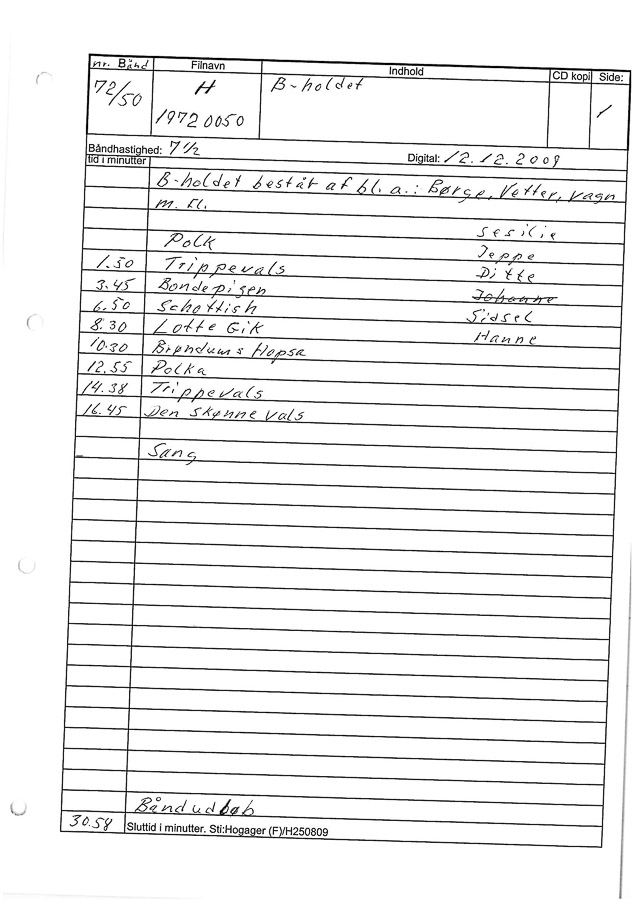 nr. Bånd Filnavn Indhold CD kopi Side:
72/50 H B-holdet 1
1972 0050
Båndhastighed: 7 1/2 Digital: 12.12.2009
tid i minutter
B-holdet består af bl. a.: Børge, Vetter, vagn
m. fl.
Sesilie
Polk Jeppe
1.50 Trippevals Ditte
3.45 Bondepigen Johanne
6.50 Schottish Sidsel
8.30 Lotte Gik Hanne
10.30 Brøndums Hopsa
12.55 Polka
14.38 Trippevals
16.45 Den Skønne vals
Sang
Båndudløb
30.58 Sluttid i minutter. Sti:Hogager (F)/H250809